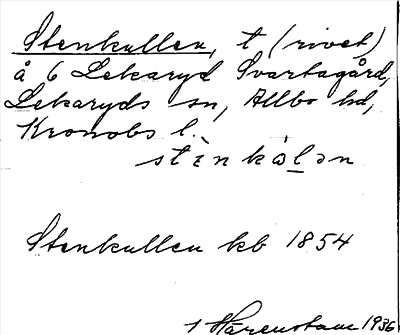 Stenkullen, t (rivet)
å 6 Lekaryd Svartagård,
Lekaryds sn, Allbo hd,
Kronobs l.
stènkàl̲ən
Stenkullen kb 1854
1 Härenstam 1936